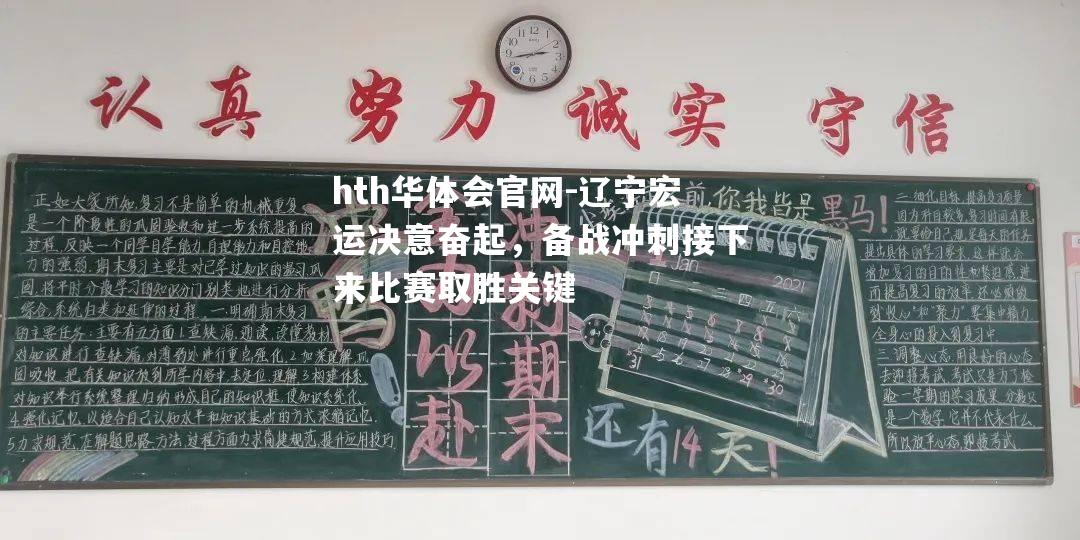 认真 努力 诚实 守信
hth华体会官网-辽宁宏
运决意奋起，备战冲刺接下
来比赛取胜关键
正如大家所知,复习不是简单的机械重复,
是一个阶段性的巩固验收和进一步系统提高的
过程,反映一个同学自学能力自控能力
力的强弱.期末复习主要是对已学过知识的温习巩
固,将平时分散学习的知识分门别类地进行分析
综合,系统归类和延伸的过程.一.明确期末复习
的主要任务:主要有五方面1.查缺漏,通读,读懂教材,
对知识进行查缺漏,对薄弱处进行重点强化.2.加深理解巩
固吸收,把有关知识放到所学内容中去定位,理解3.构建体系
对知识举行系统整理归纳形成自己的知识框,使知识系统化.
4.强化记忆,以适合自己认知水平和知识基础的方法浓缩记忆.
5.力求规范,在解题思路,方法,过程方面力求简捷规范,提升应用技巧
以
赴
冲
刺
期
末
前,你我皆是黑马!
Jan
2021
日 一 二 三 四 五 六
31
还有14天!
二.细化目标,提高复习质量
因为科目较多,复习时间有限,
就要给自己规定每天的任务
提出具体的学习要求,这样就会
增加复习的目的性和紧迫感,进
而提高复习的效率,还必须做
到"收心"和"聚力"要集中精力
全身心的投入到复习中
三.调整心态,用良好的心态
去迎接考试,考试只是为了检
验一学期的学习成果,分数只
是一个数字,它并不代表什么,
所以放平心态,迎接考试